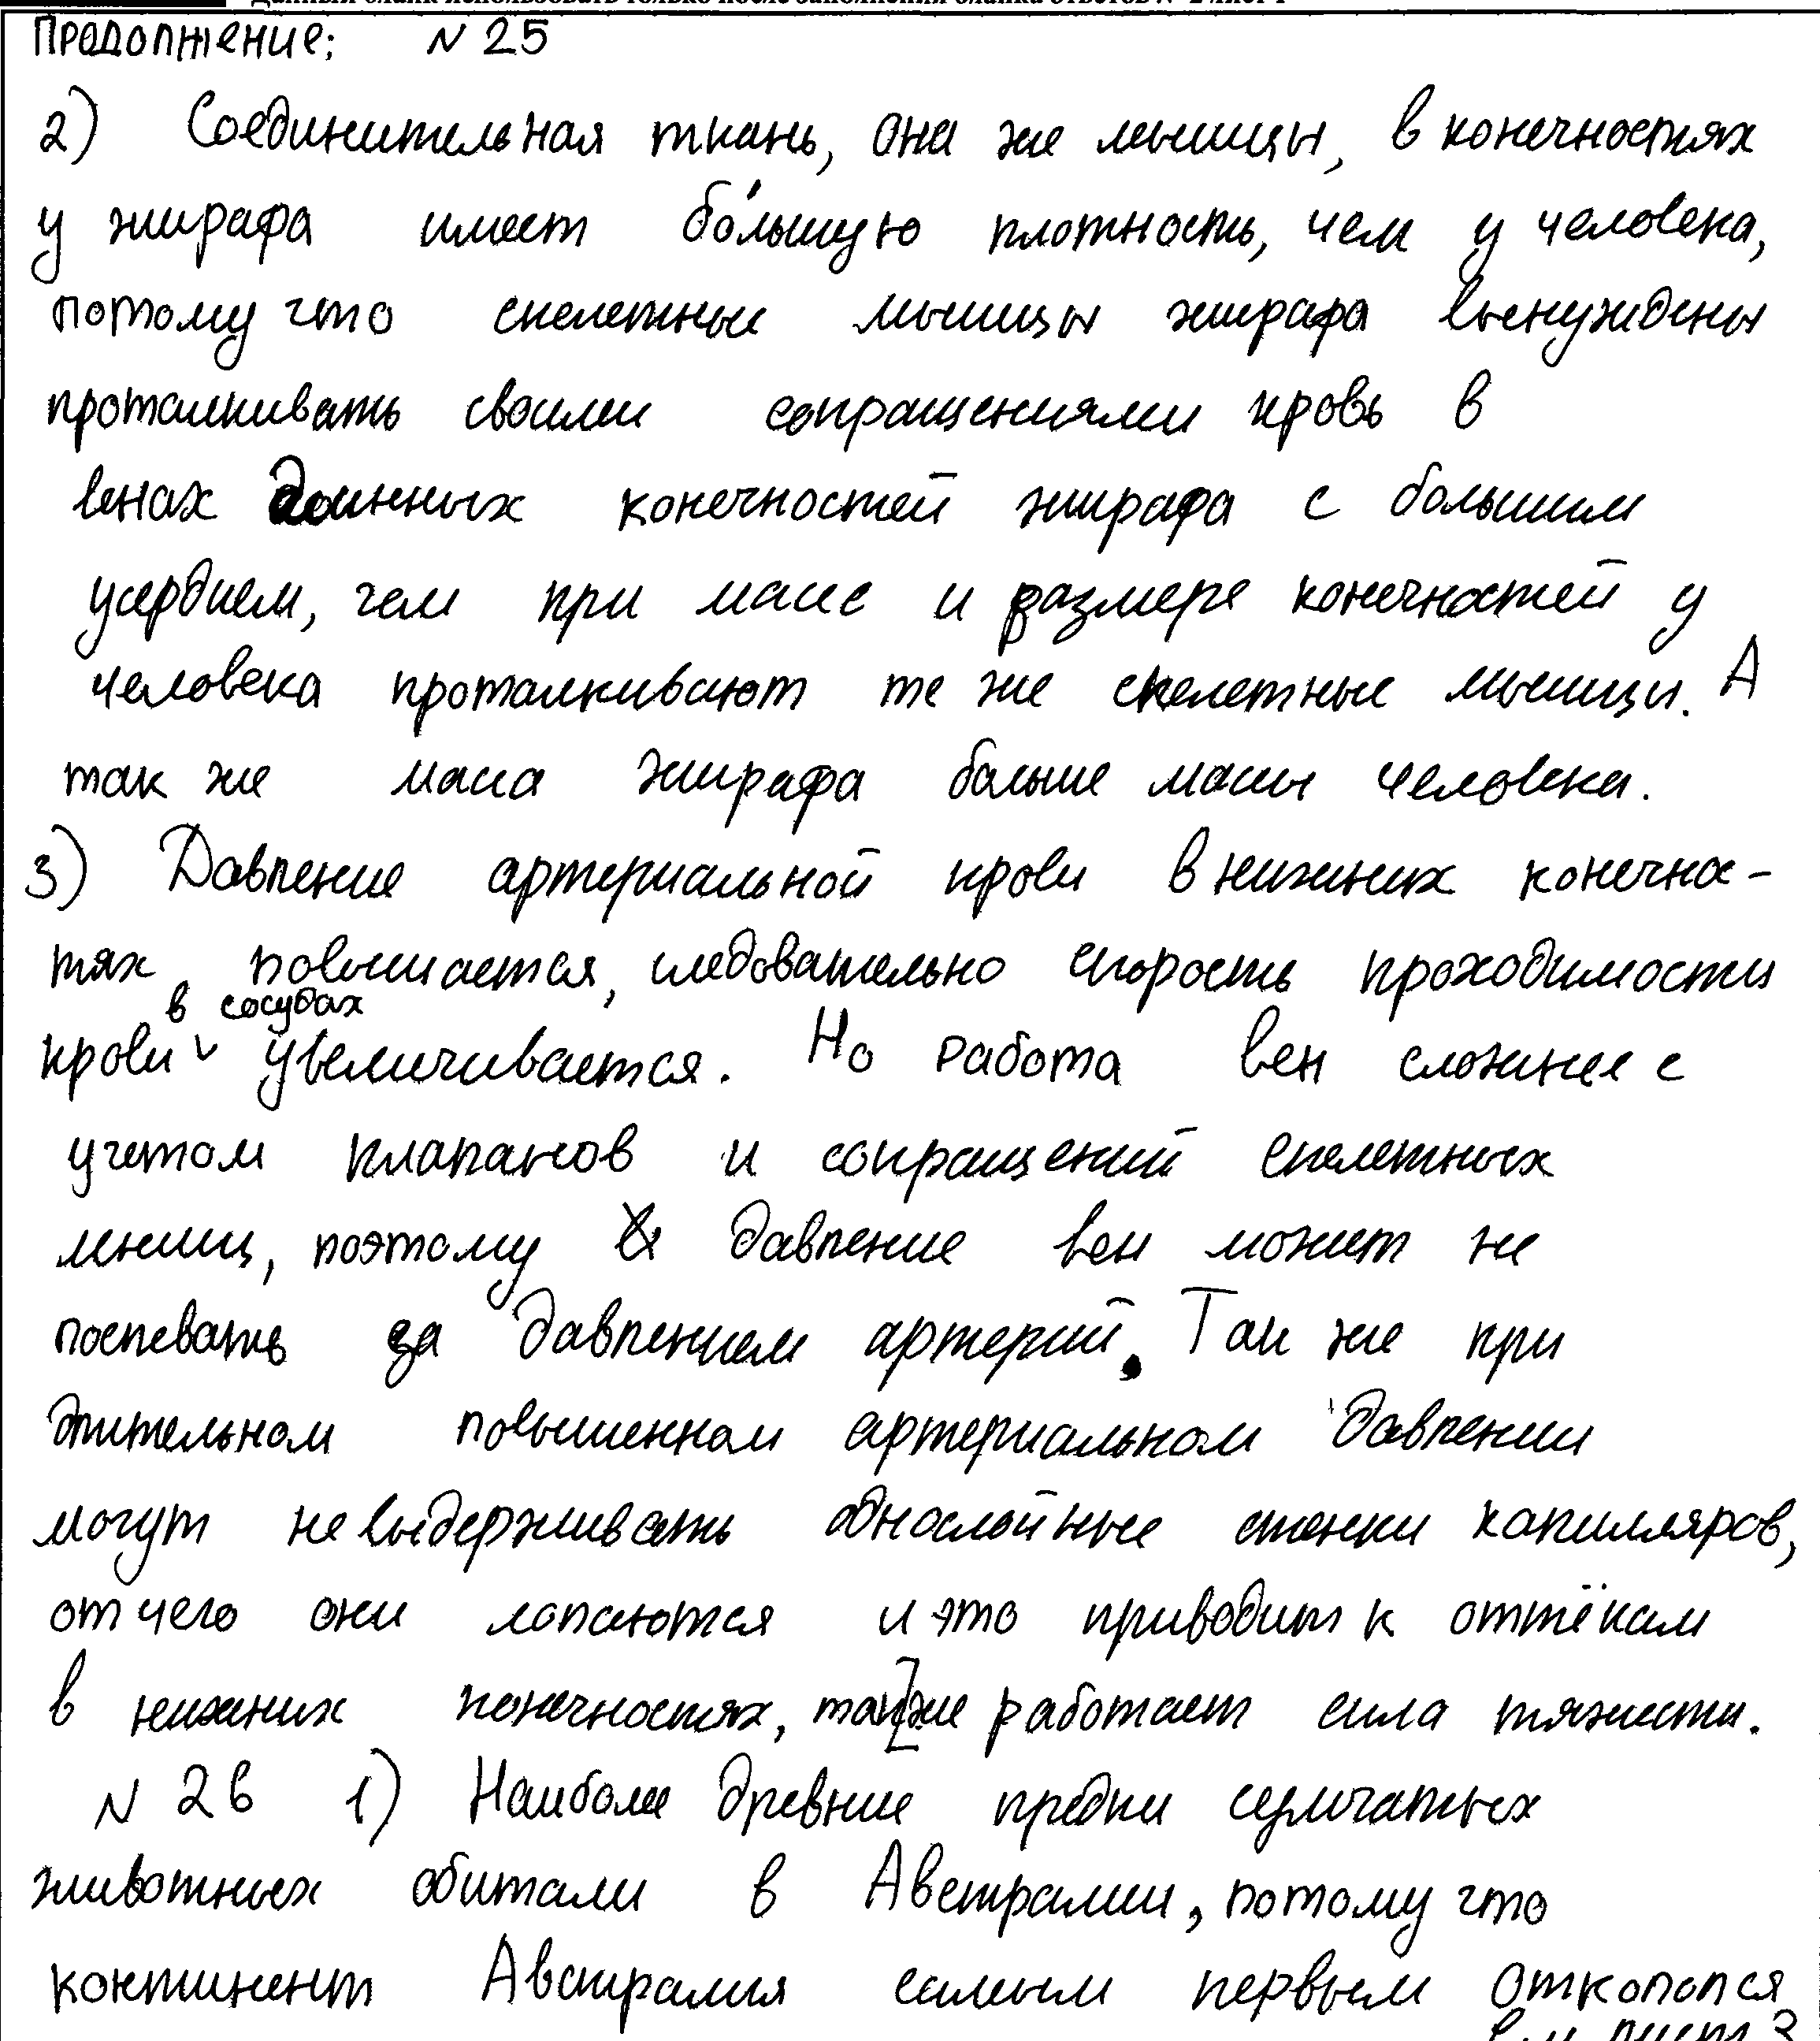 Продолжение: N 25
2) Соединительная ткань, она же мышцы, в конечностях
у жирафа имеет бо́льшую плотность, чем у человека,
потому что скелетные мышцы жирафа вынуждены
проталкивать своими сокращениями кровь в
венах длинных конечностей жирафа с большим
усердием, чем при массе и размере конечностей у
человека проталкивают те же скелетные мышцы. А
так же масса жирафа больше массы человека.
3) Давление артериальной крови в нижних конечнос-
тях повышается, следовательно скорость проходимости
крови в сосудах увеличивается. Но работа вен сложнее с
учетом клапанов и сокращений скелетных
мышц, поэтому давление вен может не
поспевать за давлением артерий. Так же при
длительном повышенном артериальном давлении
могут не выдерживать однослойные стенки капилляров,
от чего они лопаются и это приводит к оттёкам
в нижних конечностях, так же работает сила тяжести.
N 26 1) Наиболее древние предки сумчатых
животных обитали в Австралии, потому что
континент Австралия самым первым откололся